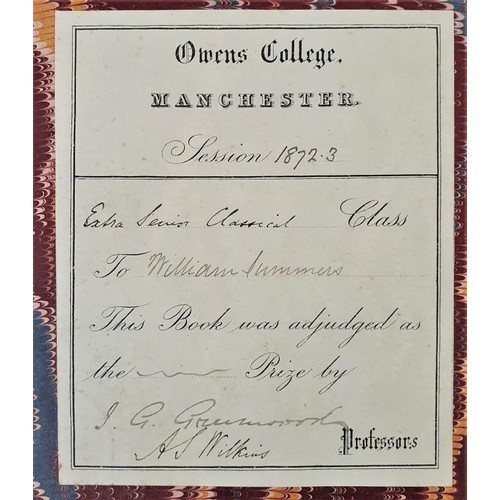 Owens College,
MANCHESTER.
Session 1872.3
Extra Senior Classical Class
To William Summers
This Book was adjudged as
the Prize by
J. G. Greenwood
A S Wilkins Professors